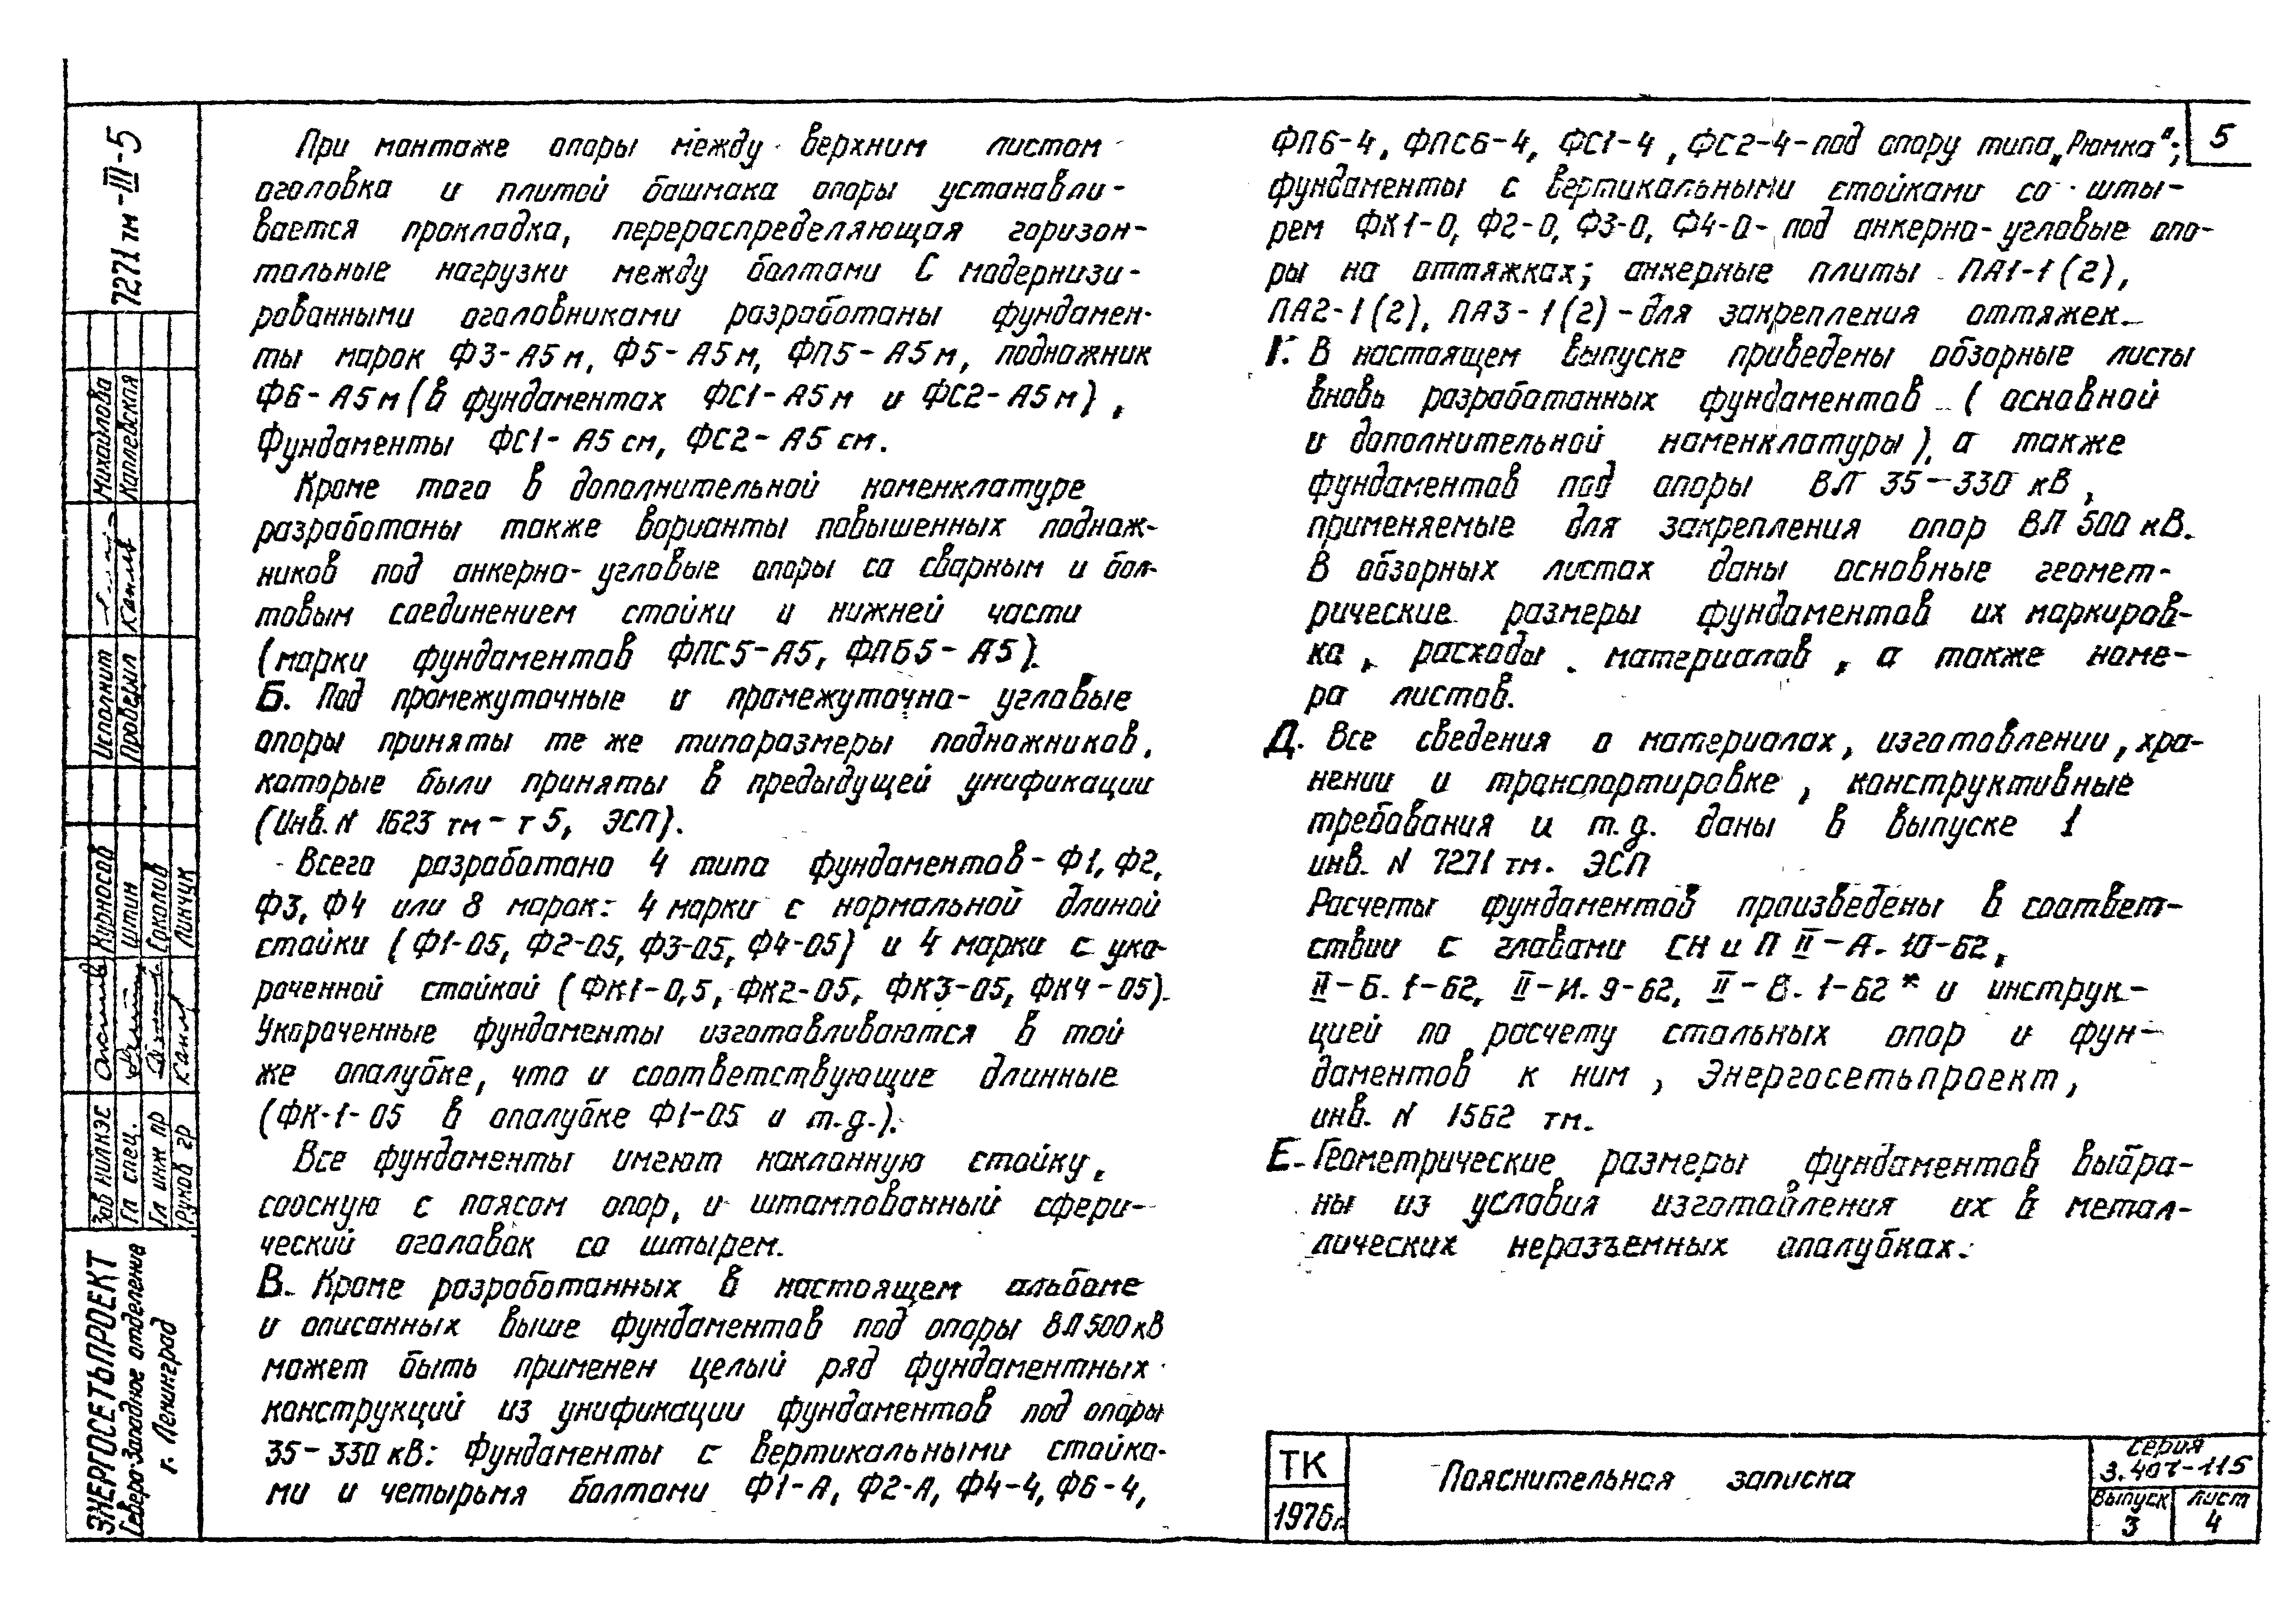 5
7271 тм -III-5
При монтаже опоры между верхним листом
оголовка и плитой башмака опоры устанавли-
вается прокладка, перераспределяющая горизон-
тальные нагрузки между болтами С модернизи-
рованными оголовниками разработаны фундамен-
ты марок Ф3-А5м, Ф5-А5м, ФП5-А5м, подножник
Ф6-А5м (в фундаментах ФС1-А5м и ФС2-А5м),
Фундаменты ФС1-А5см, ФС2-А5см.
Кроме того в дополнительной номенклатуре
разработаны также варианты повышенных поднож-
ников под анкерно-угловые опоры со сварным и бол-
товым соединением стойки и нижней части
(марки фундаментов ФПС5-А5, ФПБ5-А5).
Б. Под промежуточные и промежуточно-угловые
опоры приняты те же типоразмеры подножников,
которые были приняты в предыдущей унификации
(Инв. N 1623 тм-т5, ЭСП).
Всего разработано 4 типа фундаментов-Ф1, Ф2,
Ф3, Ф4 или 8 марок: 4 марки с нормальной длиной
стойки (Ф1-05, Ф2-05, Ф3-05, Ф4-05) и 4 марки с уко-
роченной стойкой (ФК1-0,5, ФК2-05, ФК3-05, ФК4-05).
Укороченные фундаменты изготавливаются в той
же опалубке, что и соответствующие длинные
(ФК-1-05 в опалубке Ф1-05 и т.д.).
Все фундаменты имеют наклонную стойку,
соосную с поясом опор, и штампованный сфери-
ческий оголовок со штырем.
В. Кроме разработанных в настоящем альбоме
и описанных выше фундаментов под опоры ВЛ 500 кВ
может быть применен целый ряд фундаментных
конструкций из унификации фундаментов под опоры
35-330 кВ: Фундаменты с вертикальными стойка-
ми и четырьмя болтами Ф1-А, Ф2-А, Ф4-4, Ф6-4,
ФП6-4, ФПС6-4, ФС1-4, ФС2-4-под опору типа „Рюмка";
фундаменты с вертикальными стойками со шты-
рем ФК1-0, Ф2-0, Ф3-0, Ф4-0- под анкерно-угловые опо-
ры на оттяжках; анкерные плиты ПА1-1(2),
ПА2-1(2), ПА3-1(2)-для закрепления оттяжек.
Г. В настоящем выпуске приведены обзорные листы
вновь разработанных фундаментов (основной
и дополнительной номенклатуры), а также
фундаментов под опоры ВЛ 35-330 кВ,
применяемые для закрепления опор ВЛ 500 кВ.
В обзорных листах даны основные геомет-
рические размеры фундаментов их маркиров-
ка, расходы материалов, а также номе-
ра листов.
Д. Все сведения о материалах, изготовлении, хра-
нении и транспортировке, конструктивные
требования и т.д. даны в выпуске 1
инв. N 7271 тм. ЭСП
Расчеты фундаментов произведены в соответ-
ствии с главами СН и П II-А. 10-62,
II-Б. 1-62, II-И. 9-62, II-В. 1-62* и инструк-
цией по расчету стальных опор и фун-
даментов к ним, Энергосетьпроект,
инв. N 1562 тм.
Е. Геометрические размеры фундаментов выбра-
ны из условия изготовления их в метал-
лических неразъемных опалубках.
Исполнит Михайлова
Проверил Каплевская
Зав НИЛКЭС Курносов
Гл спец. Штин
Гл инж пр Соколов
Руков гр Линчук
ЭНЕРГОСЕТЬПРОЕКТ
Северо-Западное отделение
г. Ленинград
ТК
1976г.
Пояснительная записка
Серия
3.407-115
Выпуск
3
лист
4